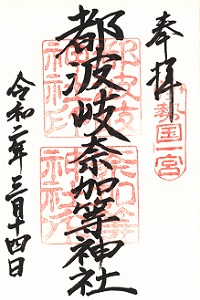 奉拝
勢国一宮
都波岐奈加等神社
令和二年三月十四日